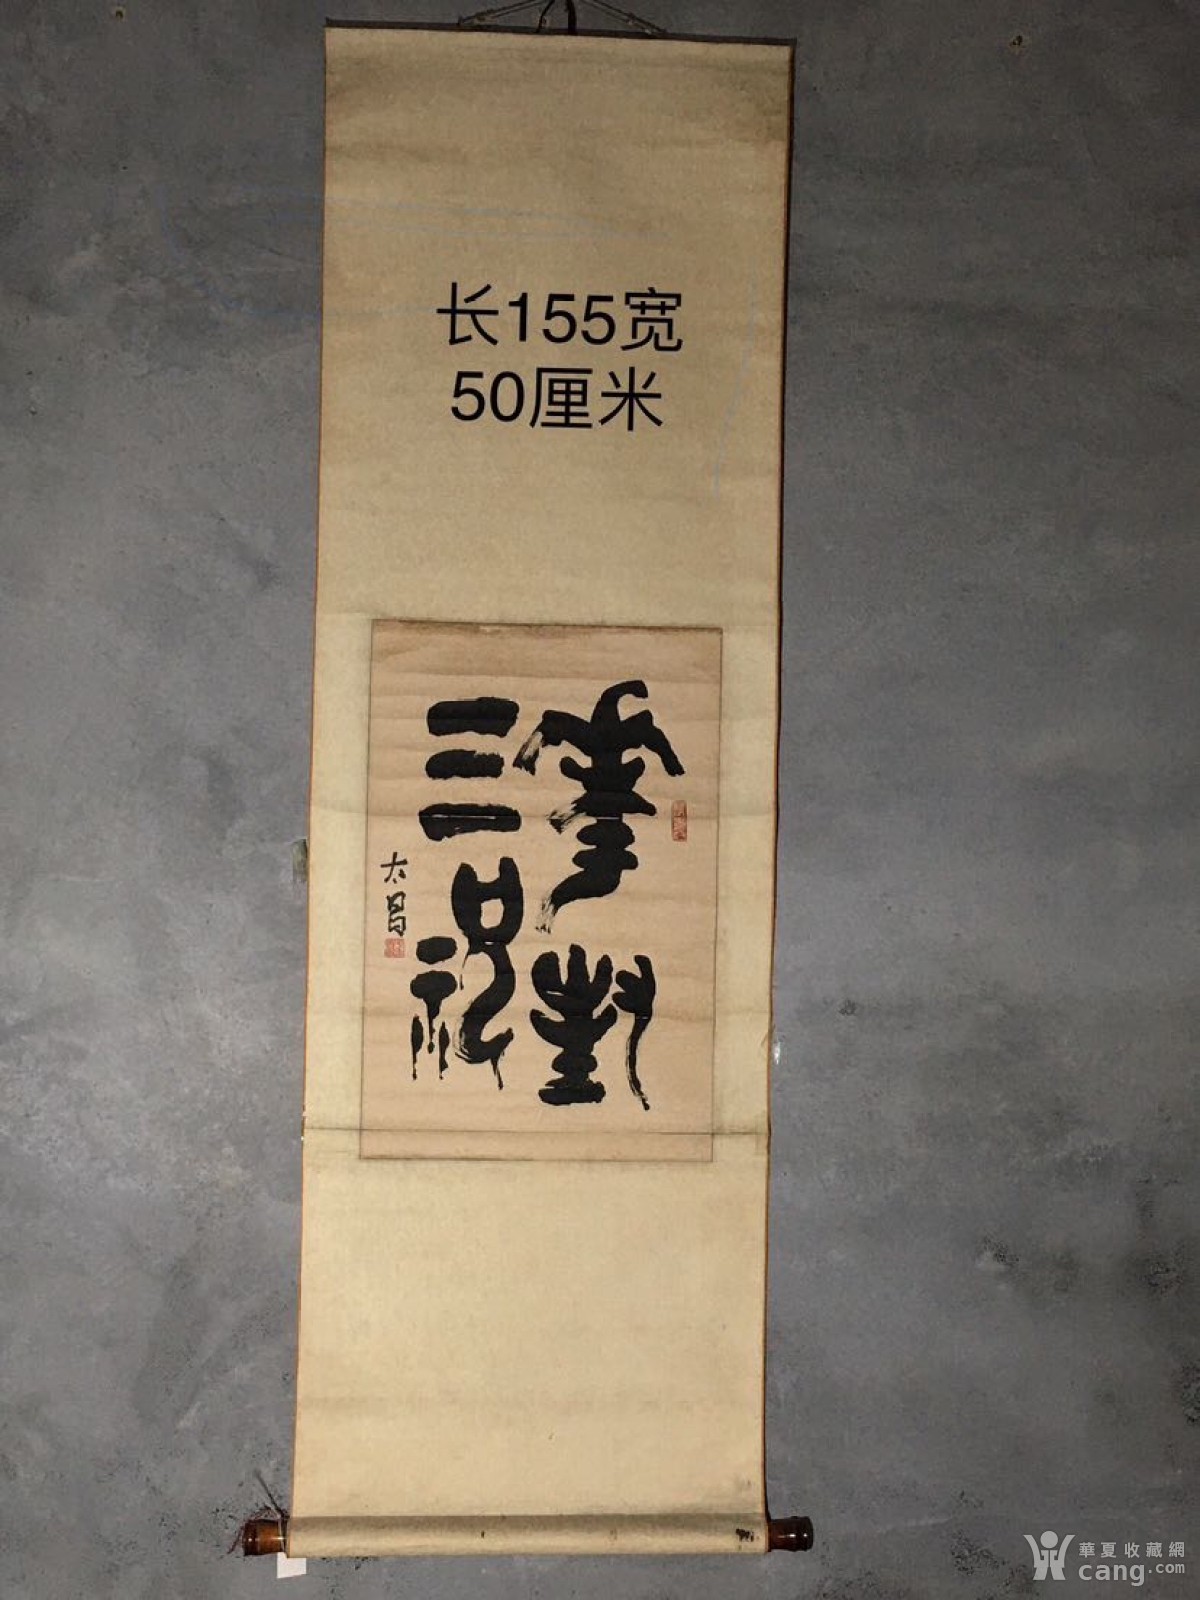 长155宽
50厘米
華封
三祝
太昌
華夏收藏網
cang.com